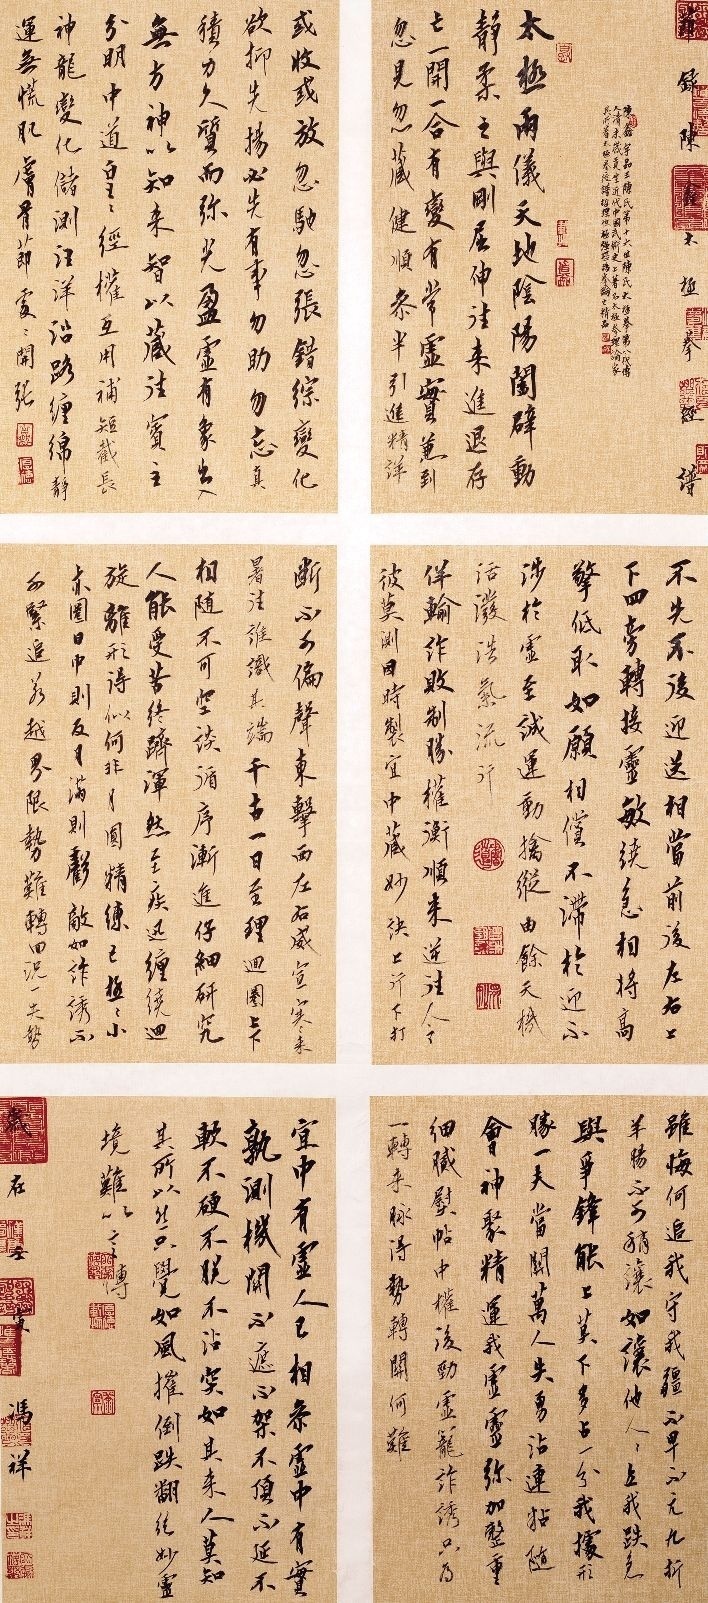 節錄陳鑫太極拳經譜
陳鑫字品三陳氏第十六世陳氏太極拳第八代傳
人清末歲貢生近代中國武術史上著名太極拳理論家
太極兩儀天地陰陽闔辟動
靜柔之與剛屈伸往來進退存
亡一開一合有變有常虛實兼到
忽見忽藏健順參半引進精詳
或收或放忽馳忽張錯綜變化
欲抑先揚必先有事勿助勿忘真
積力久質而弥光盈虛有象出入
無方神以知来智以藏往賓主
分明中道皇々經權互用補短截長
神龍變化儲測汪洋沿路纏綿靜
運無慌肌膚骨節處々開張
不先不後迎送相當前後左右上
下四旁轉接靈敏繞急相将高
擎低取如願相償不滯於迹不
涉於虛至誠運動擒縱由餘天機
活潑浩氣流行
佯輸詐敗制勝權衡順来逆往令
彼莫測因時製宜中藏妙訣上行下打
斷不可偏聲東擊西左右威宣寒来
暑往誰識其端千古一日至理迴圈上下
相随不可空談循序漸進仔細研究
人能受苦終躋渾然至疾迅纏繞迴
旋離形得似何非月圓精練已極々小
亦圈日中則反月滿則虧敵如詐誘不
可緊追若越界限勢難轉回況一失勢
雖悔何追我守我疆不卑不亢九折
羊腸不可稍讓如讓他人々立我跌急
與爭鋒能上莫下多占一分我據形
勝一夫當關萬人失勇沾連粘随
會神聚精運我虛靈弥加整重
細膩熨帖中權後勁虛籠詐誘只為
一轉来脉得勢轉關何難
宜中有虛人己相參虛中有實
孰測機關不遮不架不頂不延不
軟不硬不脫不沾突如其来人莫知
其所以然只覺如風摧倒跌翻絕妙靈
境難以言傳